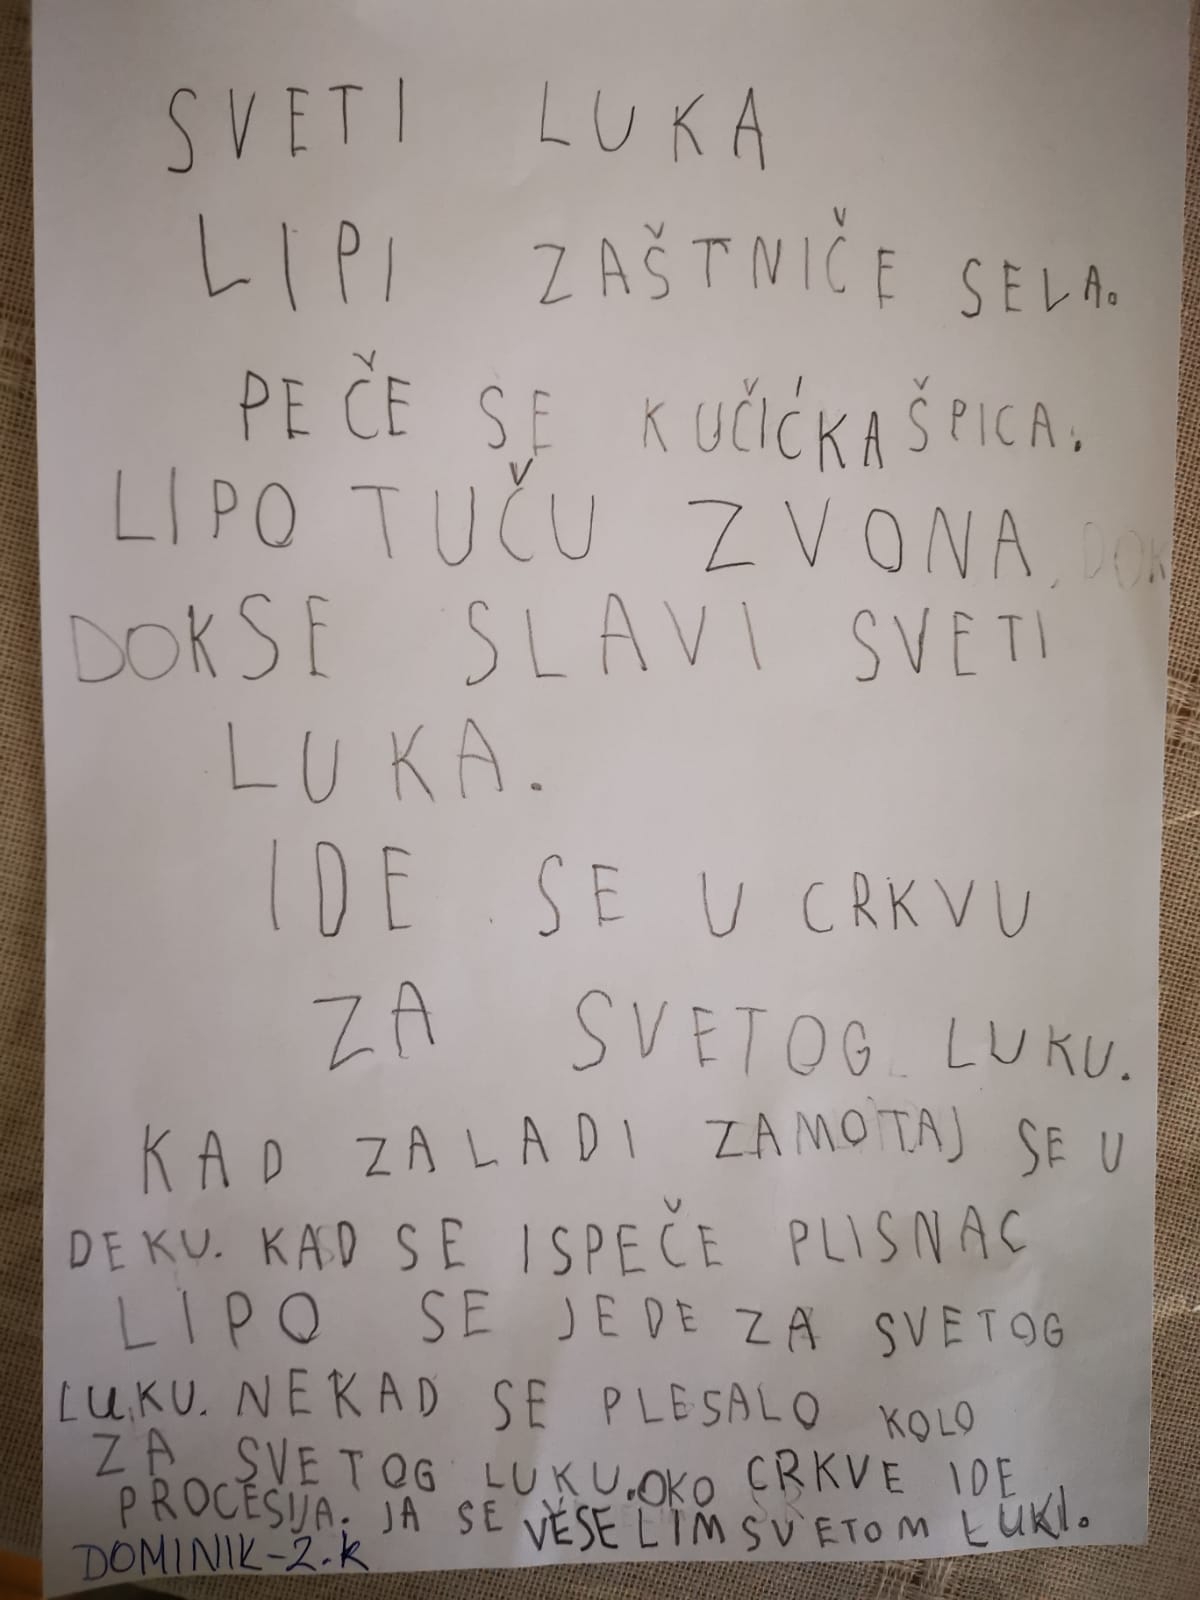 SVETI LUKA
LIPI ZAŠTNIČE SELA.
PEČE SE KUČIĆKA ŠPICA.
LIPO TUČU ZVONA, DOK
DOK SE SLAVI SVETI
LUKA.
IDE SE U CRKVU
ZA SVETOG LUKU.
KAD ZALADI ZAMOTAJ SE U
DEKU. KAD SE ISPEČE PLISNAC
LIPO SE JEDE ZA SVETOG
LUKU. NEKAD SE PLESALO KOLO
ZA SVETOG LUKU. OKO CRKVE IDE
PROCESIJA. JA SE VESELIM SVETOM LUKI.
DOMINIK-2.K